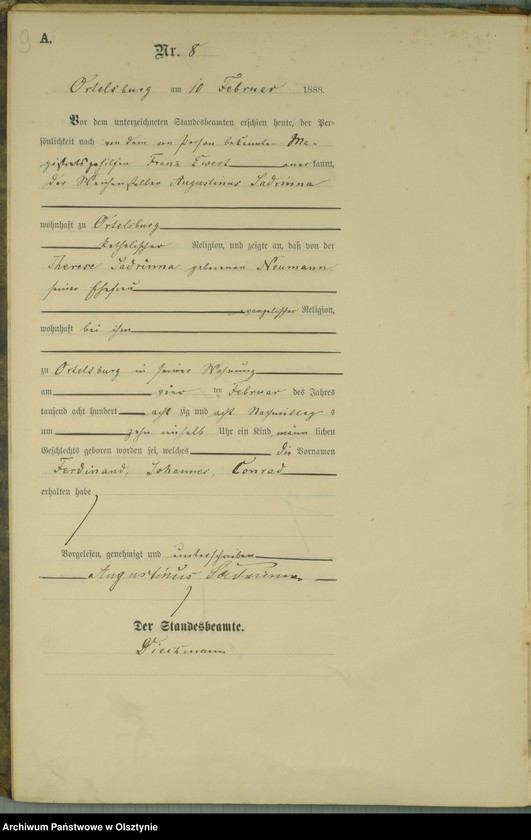 9
A.
Nr. 8
Ortelsburg am 10 Februar 1888.
Vor dem unterzeichneten Standesbeamten erschien heute, der Per-
sönlichkeit nach von dem von Person bekannten Ma-
gistratsgehilfen Franz Ewert anerkannt,
der Weichensteller Augustinus Sadrinna
wohnhaft zu Ortelsburg
katholischer Religion, und zeigte an, daß von der
Therese Sadrinna geborenen Neumann
seiner Ehefrau
evangelischer Religion,
wohnhaft bei ihm
zu Ortelsburg in seiner Wohnung
am vier ten Februar des Jahres
tausend acht hundert acht zig und acht Nachmittags
um zehn einhalb Uhr ein Kind männlichen
Geschlechts geboren worden sei, welches die Vornamen
Ferdinand, Johannes, Conrad
erhalten habe
Vorgelesen, genehmigt und unterschrieben
Augustinus Sadrinna
Der Standesbeamte.
Archiwum Państwowe w Olsztynie